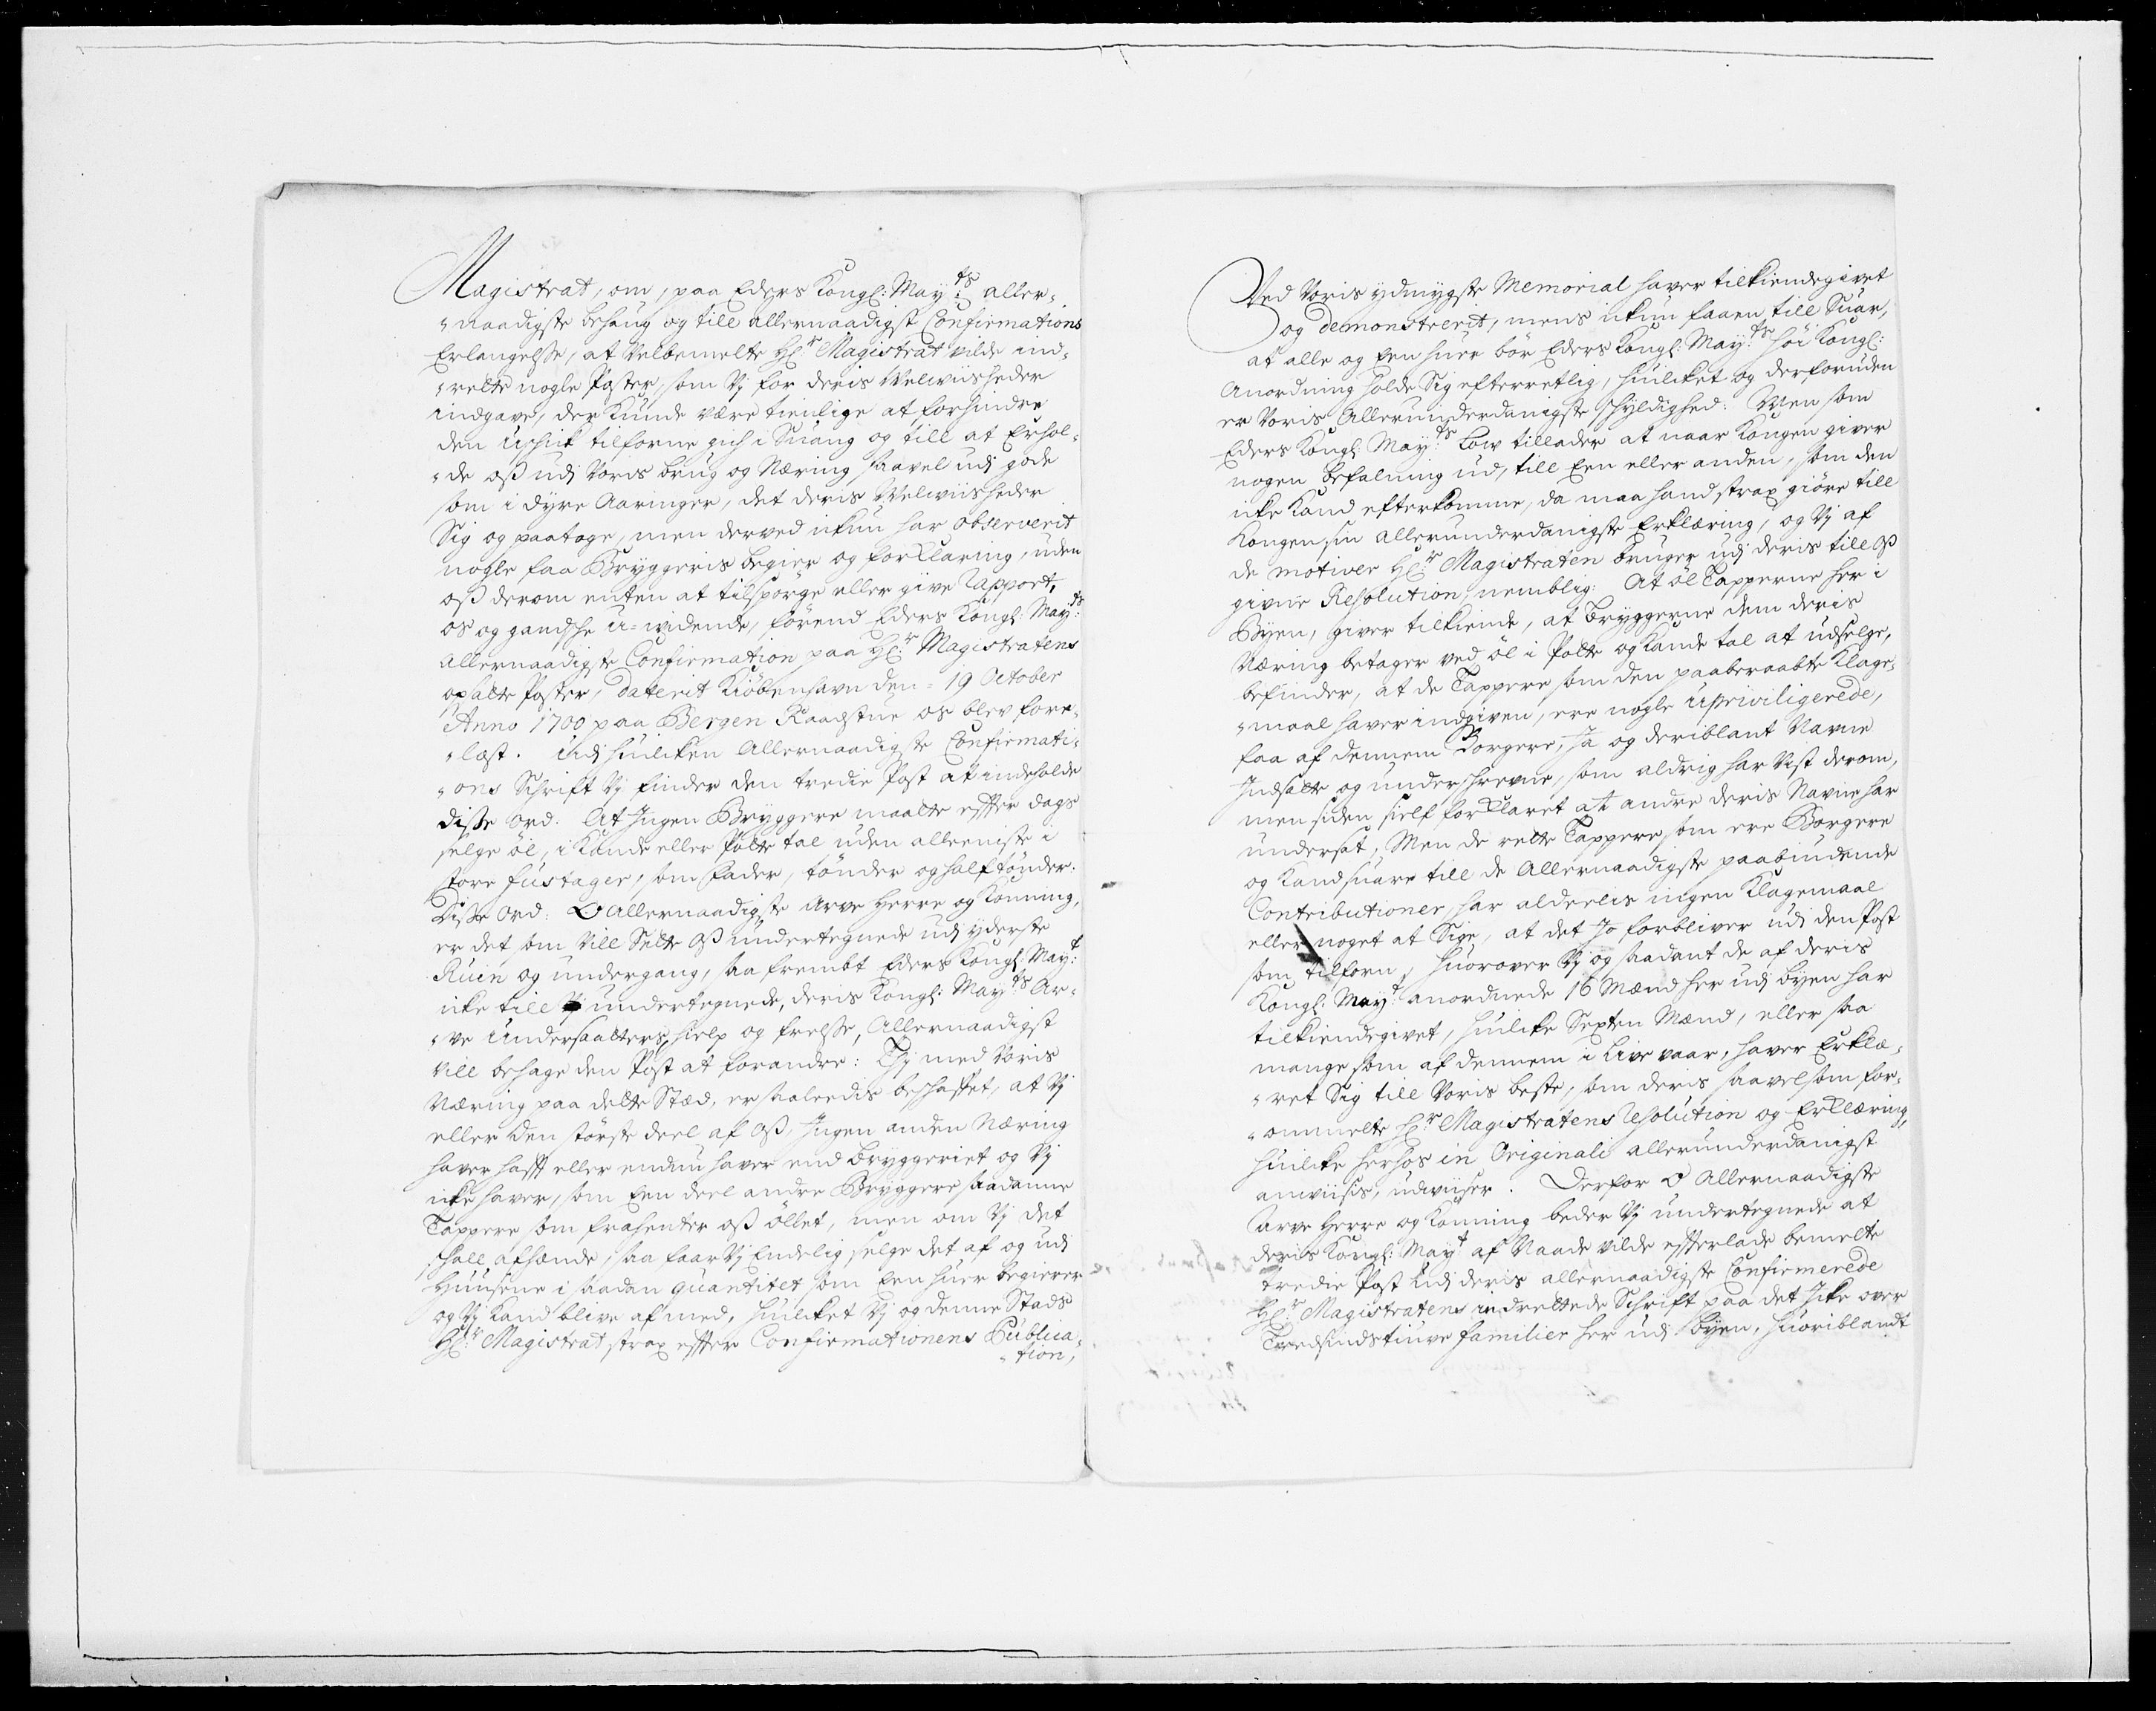 Magistrat, om, paa Eders Kongl: May:ts aller-
"naadigste behaug og till allernaadigst Confirmations
Erlangelsse, at Velbemelte Hl:r Magistrat vilde ind-
"rette nogle Poster, som Vj for deris Welwiisheder
indgaved, der kunde være tienlige at forhindre
den Uschick tilforne gich i Suang og till at Erhol-
"de oß udj Voris brug og Næring saavel udj gode
som i dyre Aaringer, det deris Welwiisheder
Sig og paatoge, men derved ickun har observerit
nogle faa Bryggeris begier og forklaring, uden
oß derom enten at tilspörge eller give Rapport,
os og gandsche u-widende, førend Eders Kongl: May:ts
Allernaadigste Confirmation paa Hl:r Magistratens
opsatte Poster, daterit Kiöbenhavn den 19 October
Anno 1700 paa Bergen Raadstue os blev fore-
"læst. Udj huilcken Allernaadigste Confirmati-
"ons Schrift Vj finder den tredie Post at indeholde
disse ord: At Ingen Bryggere maatte effter dags
selge öl, i Kande eller Potte tal uden alleeniste i
store fustager, som Fader, tönder og halftönder.
Disse ord: O Allernaadigste Arve Herre og Konning,
er det som Vill Sette Oß undertegnede udj yderste
Ruin og undergang, saa frembt Eders Kongl: May:t
icke till undertegnede, deris Kongl: May:ts Ar-
"ve Undersaatters, hielp og frelsse, Allernaadigst
vill behage den Post at forandre: Thj med Voris
Næring paa dette Stæd, er saaleedis beschaffet, at Vj
eller den störste deel af Oß, Ingen anden Næring
haver hafft eller endnu haver end bryggeriet og Vj
icke haver, som Een deel andre Bryggere saadanne
Tappere som frahenter oß öllet, men om Vj det
schall afhænde, saa faar Vj Endelig selge det af og udj
Huusene i saadan quantitet som Een huer begierer
og Vj kand blive af med, huilcket Vj og denne Stads
Hl:r Magistrat strax effter Confirmationens Publica-
"tion,
Ved Voris ydmygste Memorial haver tilkiendegivet
og demonstrerit, mens ickun faaen till Suar,
at alle og Een huer bör Eders Kongl: May:ts höi Kongl:
Anordning holde Sig efterretlig, huilcket og derforuden
er Voris Allerunderdanigste schyldighed: Men som
Eders Kongl: May:ts Low tillader at naar Kongen giver
nogen befalning ud, till Een eller anden, som den
icke kand efterkomme, da maa hand strax giöre till
Kongen sin allerunderdanigste Erklæring, og Vj af
de motiver Hl:r Magistraten bruger udj deris till Oß
givne Resolution nemblig: At öl Tapperne her i
Byen, giver tilkiende, at Bryggerne dem deris
Næring betager ved öl i Potte og kande tal at udselge,
befinder, at de Tappere som den paaberaabte Klage-
"maal haver indgiven, ere nogle upriviligerede,
faa af dennem Borgere, Ja og deriblant Navne
Indsatte og underschrevne, som aldrig har Vist derom,
men siden sielf forklaret at andre deris Navne har
undersat, Men de rette Tappere som ere Borgere
og kand suare till de Allernaadigste paabiudende
Contributioner, har aldeelis ingen Klagemaal
eller noget at Sige, at det Jo forbliver udj den Post
som tilforn, huorover Vj og saadant de af deris
Kongl: May:t anordnede 16 Mænd her udj byen har
tilkiendegivet, huilcke Sexten Mænd, eller saa
mange som af dennem i Live vaar, haver Erklæ-
"ret Sig till Voris beste, som deris saavelsom for-
"ommelte Hl:r Magistratens Resolution og Erklæring,
huilcke herhos in Originali allerunderdanigst
anwiisis, udwiiser. Derfor O Allernaadigste
Arve Herre og Konning beder Vj undertegnede at
deris Kongl: May:t af Naade vilde effterlade bemelte
tredie Post udj deris allernaadigste Confirmerede
Hl:r Magistratens indrettede Schrift paa det Icke over
Tredsindstiuve familier her udj byen, huoriblandt